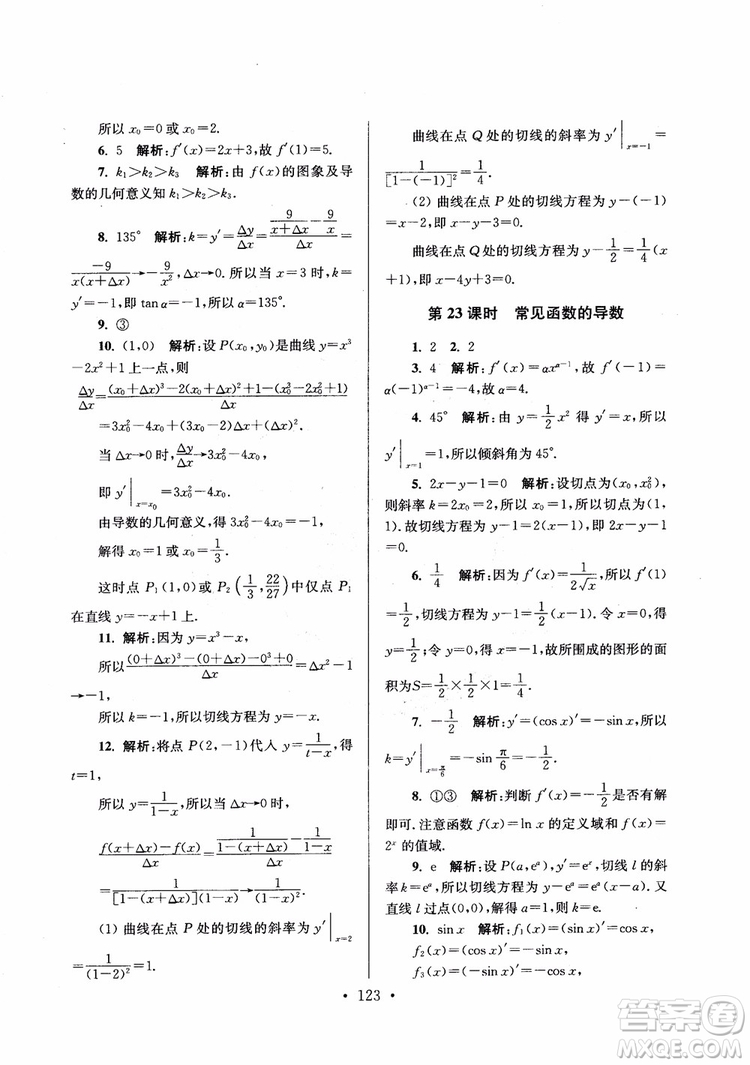 所以 x₀=0 或 x₀=2.
6. 5 解析:f′(x)=2x+3,故 f′(1)=5.
7. k₁>k₂>k₃ 解析:由 f(x)的图象及导
数的几何意义知 k₁>k₂>k₃.
8. 135° 解析:k=y′=Δy/Δx=(9/(x+Δx)-9/x)/Δx=
-9/(x(x+Δx))→-9/x²,Δx→0. 所以当 x=3 时,k=
y′=-1,即 tan α=-1,α=135°.
9. ③
10. (1,0) 解析:设 P(x₀,y₀)是曲线 y=x³
-2x²+1 上一点,则
Δy/Δx=((x₀+Δx)³-2(x₀+Δx)²+1-(x₀³-2x₀²+1))/Δx
=3x₀²-4x₀+(3x₀-2)Δx+(Δx)².
当 Δx→0 时,Δy/Δx→3x₀²-4x₀.
即 y′|x=x₀=3x₀²-4x₀.
由导数的几何意义,得 3x₀²-4x₀=-1,
解得 x₀=1 或 x₀=1/3.
这时点 P₁(1,0)或 P₂(1/3,22/27)中仅点 P₁
在直线 y=-x+1 上.
11. 解析:因为 y=x³-x,
所以((0+Δx)³-(0+Δx)-0³+0)/Δx=Δx²-1
→-1,
所以 k=-1,所以切线方程为 y=-x.
12. 解析:将点 P(2,-1)代入 y=1/(t-x),得
t=1,
所以 y=1/(1-x),当 Δx→0 时,
(f(x+Δx)-f(x))/Δx=(1/(1-(x+Δx))-1/(1-x))/Δx=
1/([1-(x+Δx)](1-x))→1/(1-x)².
(1) 曲线在点 P 处的切线的斜率为 y′|x=2
=1/(1-2)²=1.
曲线在点 Q 处的切线的斜率为 y′|x=-1=
1/[1-(-1)]²=1/4.
(2) 曲线在点 P 处的切线方程为 y-(-1)
=x-2,即 x-y-3=0.
曲线在点 Q 处的切线方程为 y-1/2=1/4(x
+1),即 x-4y+3=0.
第 23 课时 常见函数的导数
1. 2 2. 2
3. 4 解析:f′(x)=αx^(α-1),故 f′(-1)=
α(-1)^(α-1)=-4,故 α=4.
4. 45° 解析:由 y=1/2x² 得 y′=x,所以
y′|x=1=1,所以倾斜角为 45°.
5. 2x-y-1=0 解析:设切点为(x₀,x₀²),
则斜率 k=2x₀=2,所以 x₀=1,故切点为(1,
1). 故切线方程为 y-1=2(x-1),即 2x-y-1
=0.
6. 1/4 解析:因为 f′(x)=1/(2√x),所以 f′(1)
=1/2,切线方程为 y-1=1/2(x-1). 令 x=0,得
y=1/2;令 y=0,得 x=-1. 故所围成的图形的面
积为S=1/2×1/2×1=1/4.
7. -1/2 解析:y′=(cos x)′=-sin x,所以
k=y′|x=π/6=-sin π/6=-1/2.
8. ①③ 解析:判断 f′(x)=-1/2是否有解
即可. 注意函数 f(x)=ln x 的定义域和 f(x)=
2ˣ 的值域.
9. e 解析:设 P(a,eᵃ),y′=eˣ,切线 l 的斜
率 k=eᵃ,故切线方程为 y-eᵃ=eᵃ(x-a). 又
直线 l 过点(0,0),解得 a=1,故 k=e.
10. sin x 解析:f₁(x)=(sin x)′=cos x,
f₂(x)=(cos x)′=-sin x,
f₃(x)=(-sin x)′=-cos x,
· 123 ·
答案圈
MXQE.COM